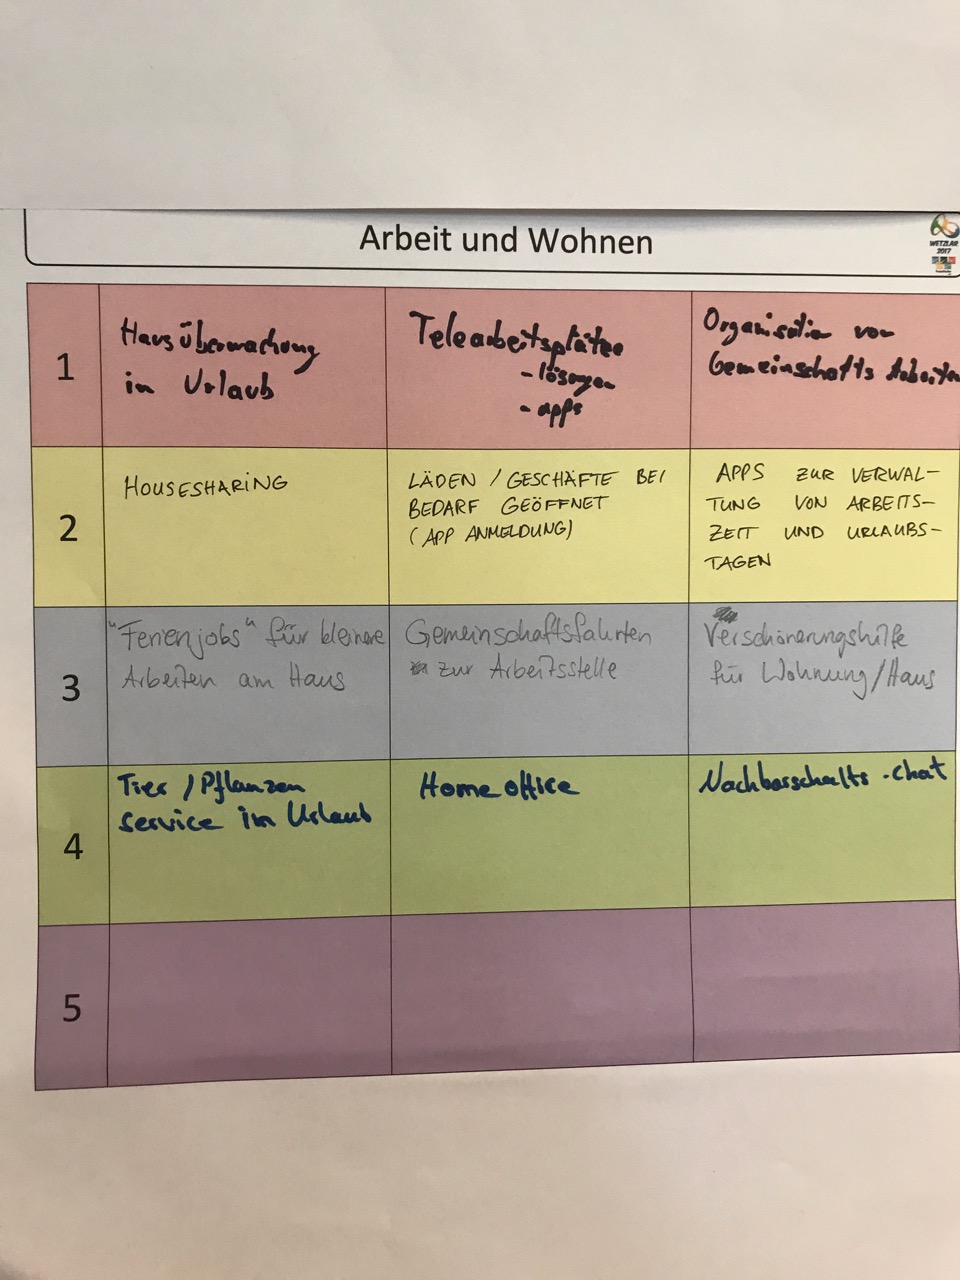 Arbeit und Wohnen
WETZLAR
2017
1
Hausüberwachung
im Urlaub
Telearbeitsplätze
- lösungen
- apps
Organisation von
Gemeinschafts Arbeiten
2
HOUSESHARING
LÄDEN / GESCHÄFTE BEI
BEDARF GEÖFFNET
(APP ANMELDUNG)
APPS ZUR VERWAL-
TUNG VON ARBEITS-
ZEIT UND URLAUBS-
TAGEN
3
"Ferienjobs" für kleinere
Arbeiten am Haus
Gemeinschaftsfahrten
zur Arbeitsstelle
Verschönerungshilfe
für Wohnung/Haus
4
Tier / Pflanzen
service im Urlaub
Homeoffice
Nachbarschafts-chat
5